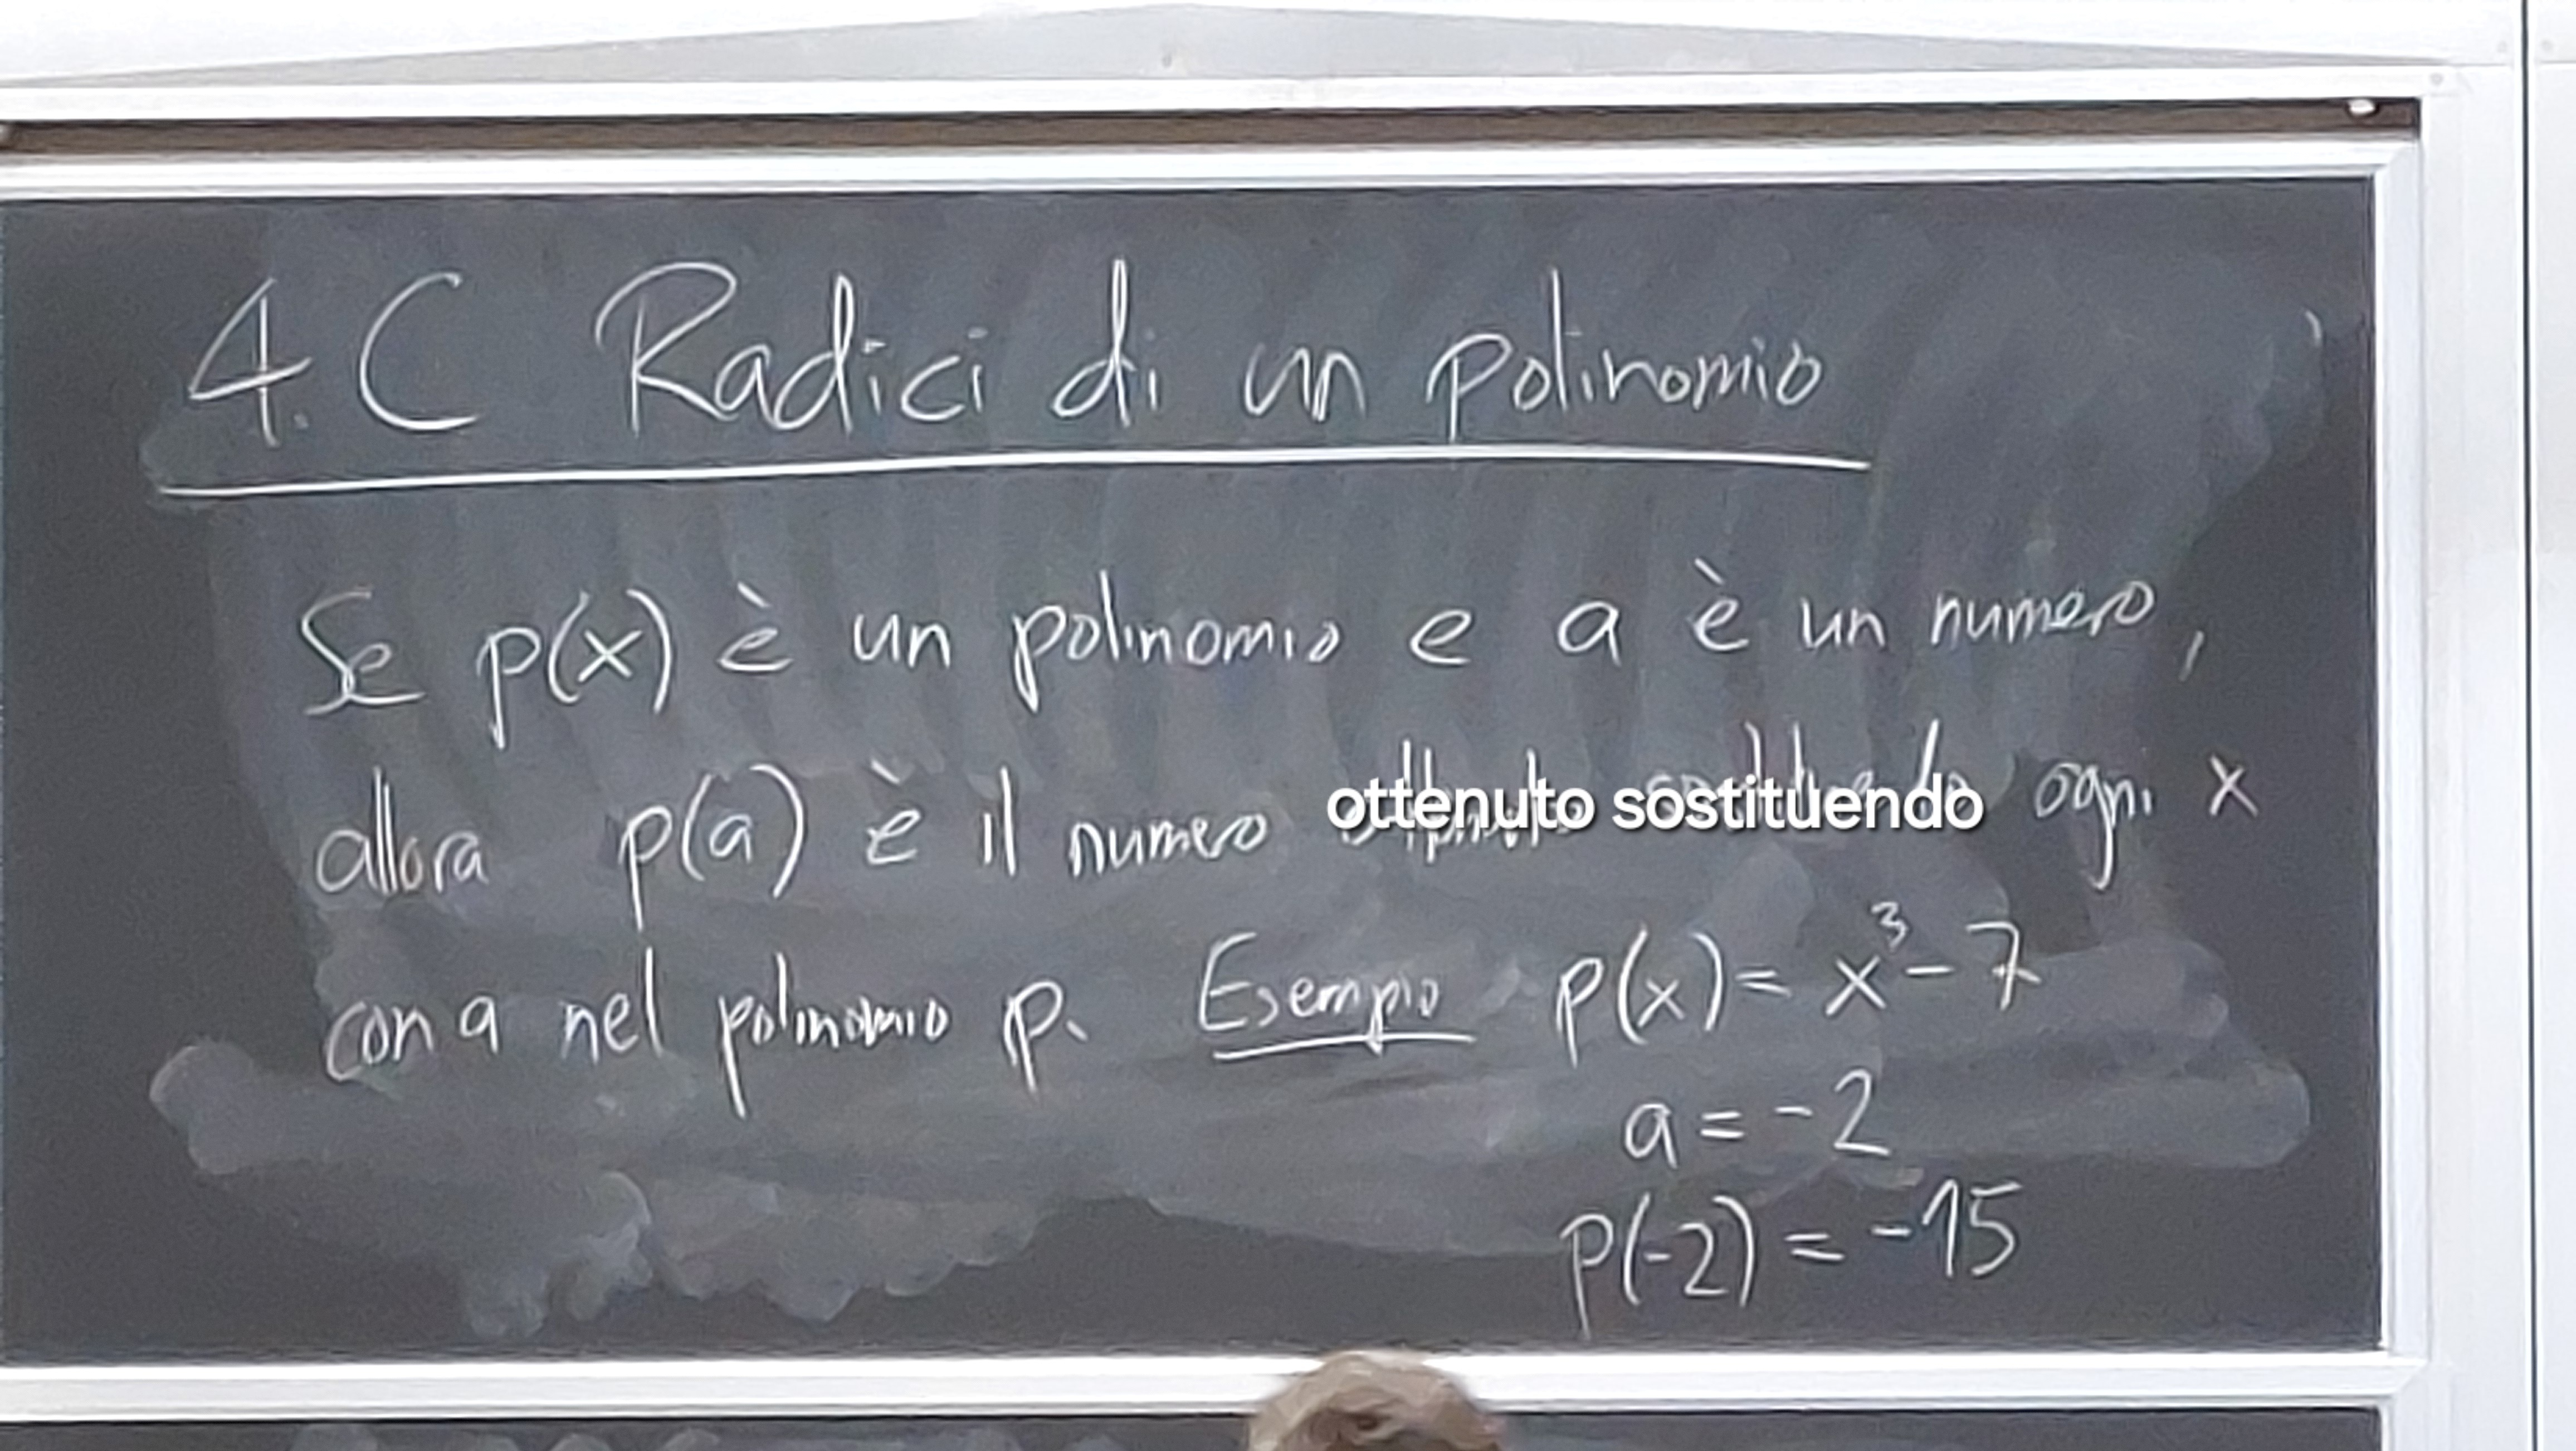 4.C Radici di un polinomio
Se p(x) è un polinomio e a è un numero,
allora p(a) è il numero ottenuto sostituendo ogni x
con a nel polinomio p. Esempio p(x) = x³ - 7
a = -2
p(-2) = -15